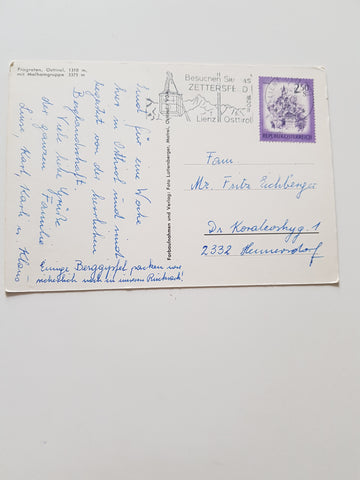 Prägraten, Osttirol, 1310 m
mit Malhamgruppe 3371 m
sind für eine Woche
hier in Osttirol und sind
begeistert von der herrlichen
Berglandschaft.
Viele liebe Grüße
der ganzen Familie
Luise, Karl, Karli u. Klaus
Einige Berggipfel packen wir
sicherlich noch in unseren Rucksack!
Farbaufnahmen und Verlag: Foto Lottersberger, Matrei, Osttirol
Besuchen Sie das
ZETTERSFELD!
Lienz Osttirol
2.50
REPUBLIK ÖSTERREICH
Fam.
Mz. Fritz Eichberger
Dr. Koralevskyg. 1
2332 Hennersdorf